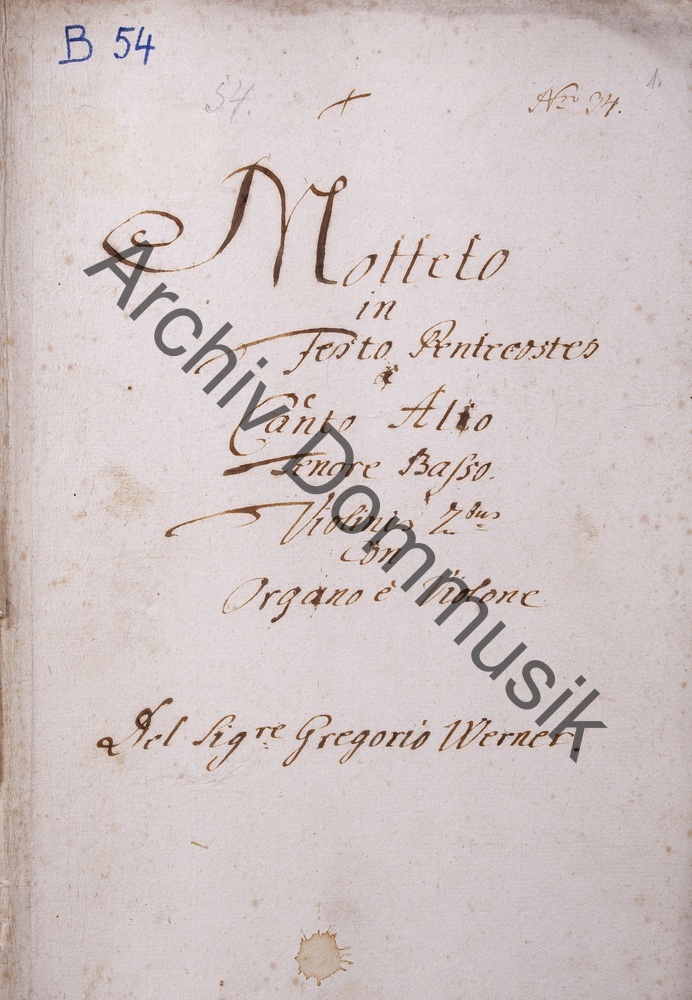 B 54
54.
Nro 34.
1.
Motteto
in
Festo Pentecostes
à
Canto Alto
Tenore Basso.
Violinis 2bus
con
Organo è Violone
Del Sigre Gregorio Werner.
Archiv Dommusik